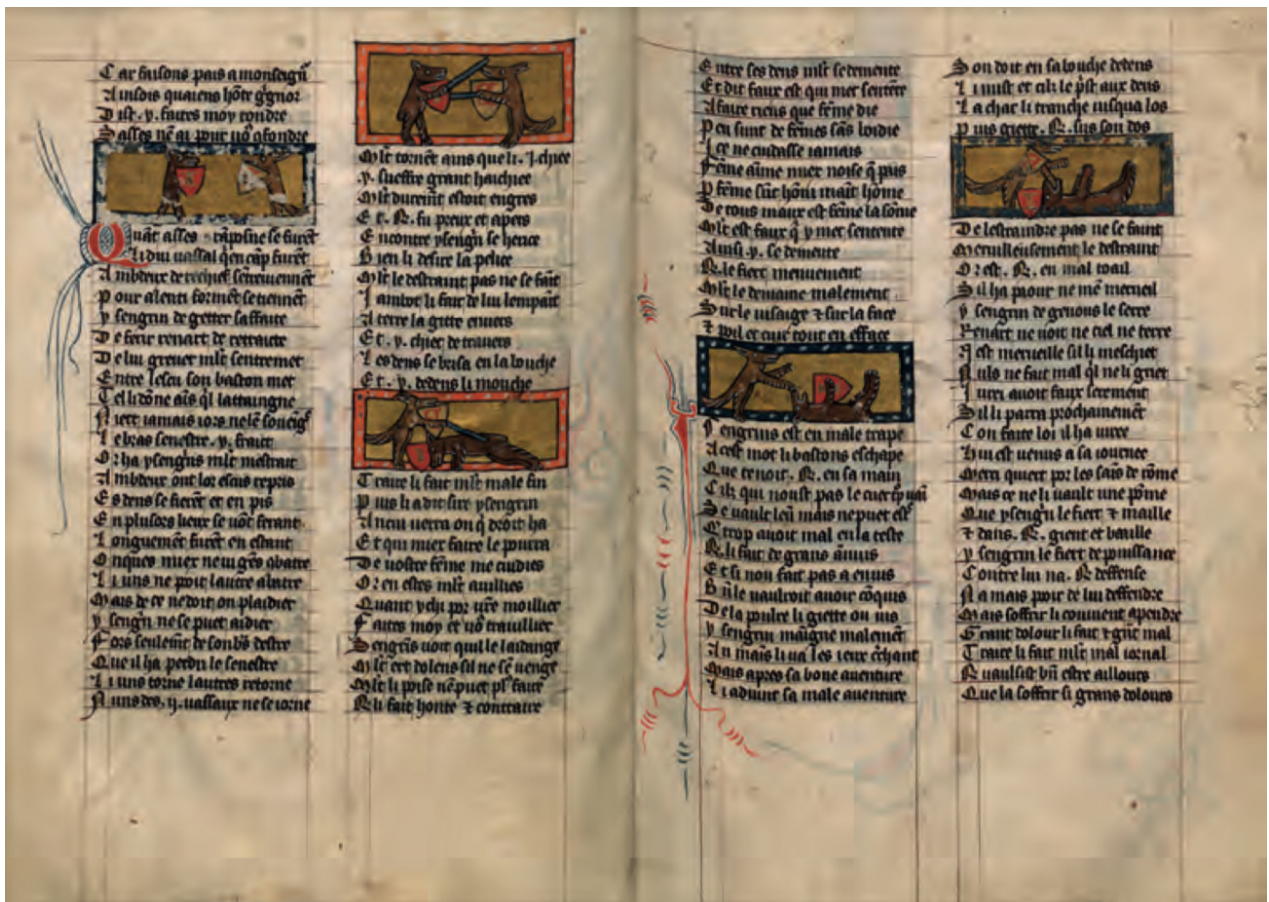 Car faisons pais a monseignr
Ainsois quaiens hōte gͬgnor
Dist .y. faites moy tondre
Sasses nē ai pour uoˢ ꝯfondre
Quāt asses
Li dui uassal qͥ en cāp furēt
Ambdeux de rechief
Pour alenti formēt se tiennēt
ysengrin de getter saffaite
De ferir renart de retraite
De lui greuer mlt sentremet
Entre lescu son baston met
Tel li dōne aīs qͥl lattaingne
Niert iamais iors ne lē
Le bras senestre .y. fraint
Or ha ysengˢ mlt mestrait
Ambdeux ont lor escus repris
Es dens se fierēt et en pis
En plusors lieux se uōt ferant
Longuemēt furēt en estant
Onques
Li uns ne poit lautre abatre
Mais de ce ne doit on plaidier
ysengͬn ne se puet aidier
Fors seulemēt de son bˢ destre
Que il ha perdu le senestre
Li uns torne lautres retorne
Nuns des .ij. uassaux ne se iorne
Mlt tornēt ains que li .I. chiee
.y. sueffre grant haichiee
Mlt duremēt estoit engres
Et .R. fu preux et apers
Encontre ysengͬn se herice
Bien li desire la pelice
Mlt le destraint pas ne se faīt
Iambot li fait de lui lempaīt
A terre la gitte enuers
Et .y. chiet de trauers
Les dens se brisa en la bouche
Et .y. dedens li mouche
Traire li fait mlt male fin
Puis li a dit sire ysengrin
Ancui uerra on qͥ droit ha
Et qui miex faire le pourra
De uostre fēme me cuidies
Or en estes mlt auillies
Quant ychi por uͬre moillier
Faites moy et uoˢ trauillier
Sengrīs uoit quil le laidange
Mlt ert dolens sil ne sē uenge
Mlt li poise nē puet plˢ faire
R. li fait honte ⁊ contraire
Entre ses dens mlt se demente
Et dit faux est qui met sentēte
A faire riens que fēme die
Peu sunt de fēmes sās boidie
Ice ne cuidasse iamais
Fēme aime miex noise qͥ pais
P fēme sūt hōni maīt hōme
De tous maux est fēme la sōme
Mlt est faux qͥ y met sentente
Ainsi .y. se demente
R. le fiert menuement
Mlt le demaine malement
Sur le uisaige ⁊ sur la face
⁊ poil et cuir tout en efface
Y sengrins est en male trape
A cest mot li bastons eschape
Que tenoit .R. en sa main
Cilz qui noust pas le cuer
Se uault
Cͬ trop auoit mal en la teste
R. li fait de grans āuis
Et si non fait pas a enuis
Bn̄ le uauroit auoir cōquis
De la poudre li giette ou uis
ysengrin maigne malemēt
Au mais li ua les ieux
Mais apres sa bone auenture
Li aduint sa male auenture
Son doit en sa bouche dedens
Li must et cilz le pͬst aux dens
La char li tranche iusqua los
Puis giette .R. sus son dos
De lestraindre pas ne se faint
Merueilleusement le destraint
Or est .R. en mal toail
Sil ha paour ne mē merueil
ysengrin de genous le serre
Renart ne uoit ne ciel ne terre
Nest merueille sil li meschiet
Nuls ne fait mal qͥl ne li griet
Iurei auoit faux serement
Sil li parra prochainemēt
Con faite loi il ha uire
Hui est uenus a sa iournee
Merci quiert poͬ les sais de rōme
Mais ce ne li uault une pōme
Que ysengͬn le fiert ⁊ maille
⁊ dans .R. gient et baaille
ysengrin le fiert de puissance
Contre lui na .R. deffense
Na mais poir de lui deffendre
Mais soffrir li conuient apendre
Grant dolour li fait ⁊ gͬnt mal
Traire li fait mlt mal iornal
R. uaulsist bn̄ estre aillours
Que la soffrir si grans dolours